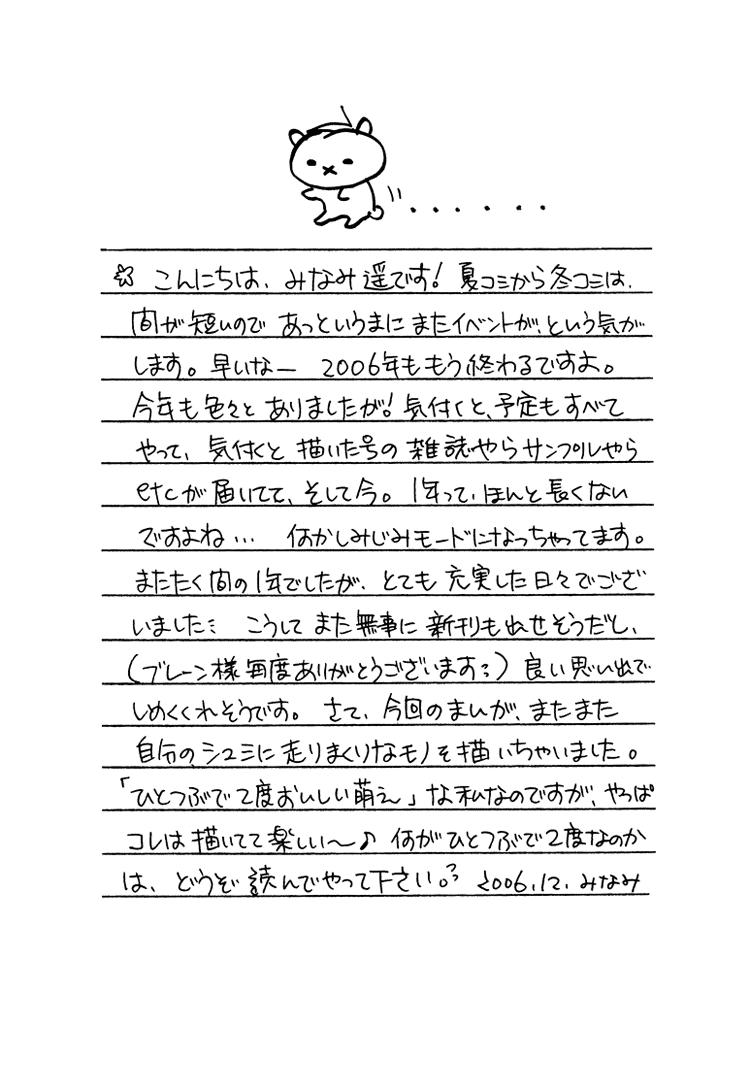 ☆ こんにちは、みなみ遥です! 夏コミから冬コミは、
間が短いので あっというまに またイベントが、という気が
します。早いなー 2006年ももう終わるですよ。
今年も色々と ありましたが! 気付くと、予定もすべて
やって、気付くと 描いた号の 雑誌やら サンプルやら
etcが届いてて、そして今。1年って、ほんと長くない
ですよね… 何かしみじみモードになっちゃってます。
またたく間の1年でしたが、とても 充実した日々でござ
いました こうして また無事に 新刊も出せそうだし、
(ブレーン様毎度ありがとうございます) 良い思い出で
しめくくれそうです。さて、今回のまんが、またまた
自分の、シュミに走りまくりなモノを描いちゃいました。
「ひとつぶで2度おいしい萌え」な私なのですが、やっぱ
コレは描いてて楽しい〜♪ 何がひとつぶで2度なのか
は、どうぞ 読んでやって下さい。 2006.12. みなみ